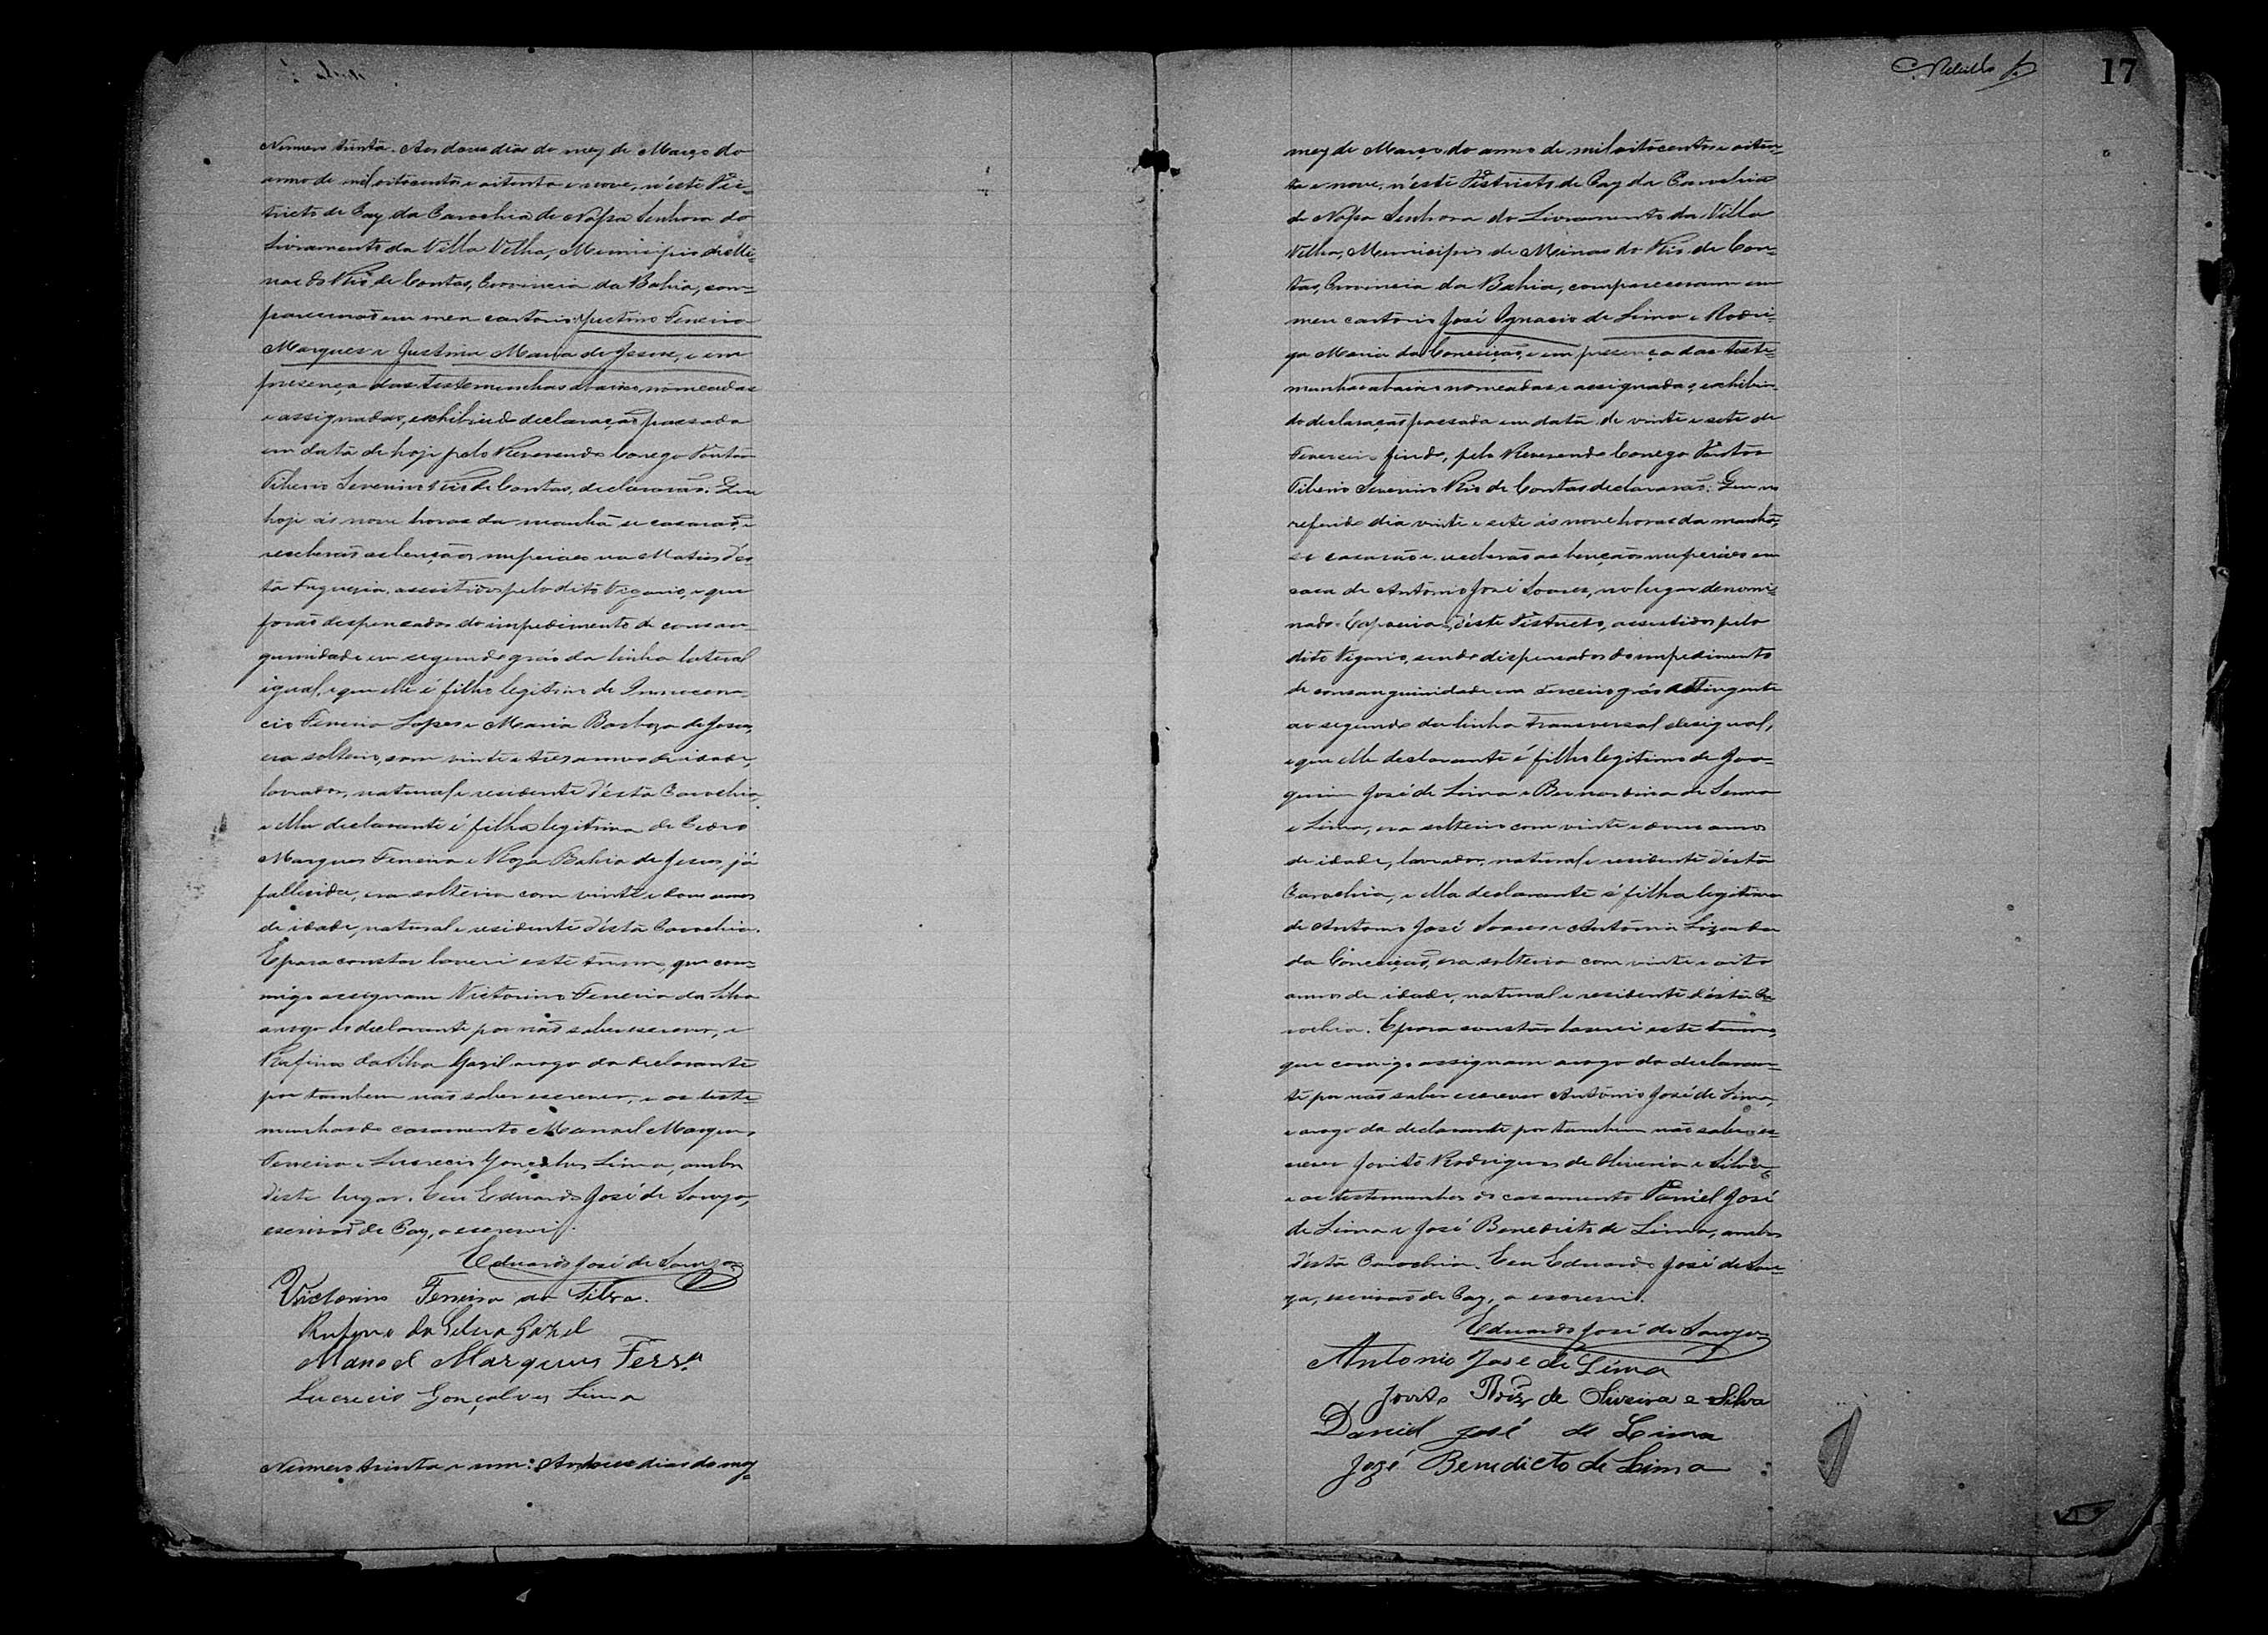 Numero trinta. Aos doze dias do mez de Março do
anno de mil oitocentos e oitenta e nove, n'este Dis-
tricto de Paz da Parochia de Nossa Senhora do
Livramento da Villa Velha, Municipio de Mi-
nas do Rio de Contas, Provincia da Bahia, com-
parecerão em meu cartorio Ferreira
Marques e Justina Maria de Jesus, e em
presença das testemunhas abaixo nomeadas
e assignadas, exhibindo declaração passada
em data de hoje pelo Reverendo Conego Pastor
Tiberio Severino Rio de Contas, declararão: Que
hoje ás nove horas da manhã se casarão, e
receberão as bençãos nupciaes na Matriz d'es-
ta Freguezia, assistidos pelo dito Vigario, e que
forão despensados do impedimento de consan-
guinidade em segundo gráo da linha lateral
igual, e que elle é filho legitimo de Innocen-
cio Ferreira Lopes e Maria Barboza de Jesus,
era solteiro, com vinte e tres annos de idade,
lavrador, natural e residente d'esta Parochia,
e ella declarante é filha legitima de Pedro
Marques Ferreira e Roza Bahia de Jesus, já
fallecida, era solteira com vinte e dous annos
de idade, natural e residente d'esta Parochia.
E para constar lavrei este termo, que com-
migo assignam Victorino Ferreira da Silva
arogo do declarante por não saber escrever, e
Rufino da Silva Gazil arogo da declarante
por tambem não saber escrever, e as teste-
munhas do casamento Manoel Marques
Ferreira e Lucrecio Gonçalves Lima, ambos
d'este lugar. Eu Eduardo José de Souza,
escrivão de Paz, o escrevi.
Eduardo José de Souza
Victorino Ferreira da Silva.
Rufino da Silva Gazil
Manoel Marques Ferrª
Lucrecio Gonçalves Lima
Numero trinta e um: Aos doze dias do mez
17
mez de Março do anno de mil oitocentos e oiten-
ta e nove, n'este Districto de Paz da Parochia
de Nossa Senhora do Livramento da Villa
Velha, Municipio de Minas do Rio de Con-
tas, Provincia da Bahia, compareceram em
meu cartorio José Ignacio de Lima e Rodri-
ga Maria da Conceição, e em presença das teste-
munhas abaixo nomeadas e assignadas, exhibin-
do declaração passada em data de vinte e sete de
Fevereiro findo, pelo Reverendo Conego Pastor
Tiberio Severino Rio de Contas declararão: Que no
referido dia vinte e sete ás nove horas da manhã,
se casarão e receberão as bençãos nupciaes em
casa de Antonio José Soares, no lugar denomi-
nado Capoeira, d'este Districto, assistidos pelo
dito Vigario, sendo dispensados do impedimento
de consanguinidade em terceiro gráo attingente
ao segundo da linha transversal desigual,
e que elle declarante é filho legitimo de Joa-
quim José de Lima e Bernardina de Senna
e Lima, era solteiro com vinte e dous annos
de idade, lavrador, natural e residente d'esta
Parochia, e ella declarante é filha legitima
de Antonio José Soares e Antonia
da Conceição, era solteira com vinte e oito
annos de idade, natural e residente d'esta Pa-
rochia. E para constar lavrei este termo,
que comigo assignam arogo do declaran-
te por não saber escrever Antonio José de Lima,
e arogo da declarante por tambem não saber es-
crever Jovito Rodrigues de Oliveira e Silva,
e as testemunhas do casamento Daniel José
de Lima e José Benedicto de Lima, ambos
d'esta Parochia. Eu Eduardo José de Sou-
za, escrivão de Paz, o escrevi.
Eduardo José de Souza
Antonio José de Lima
Jovito Roiz de Oliveira e Silva
Daniel José de Lima
Jozé Benedicto de Lima